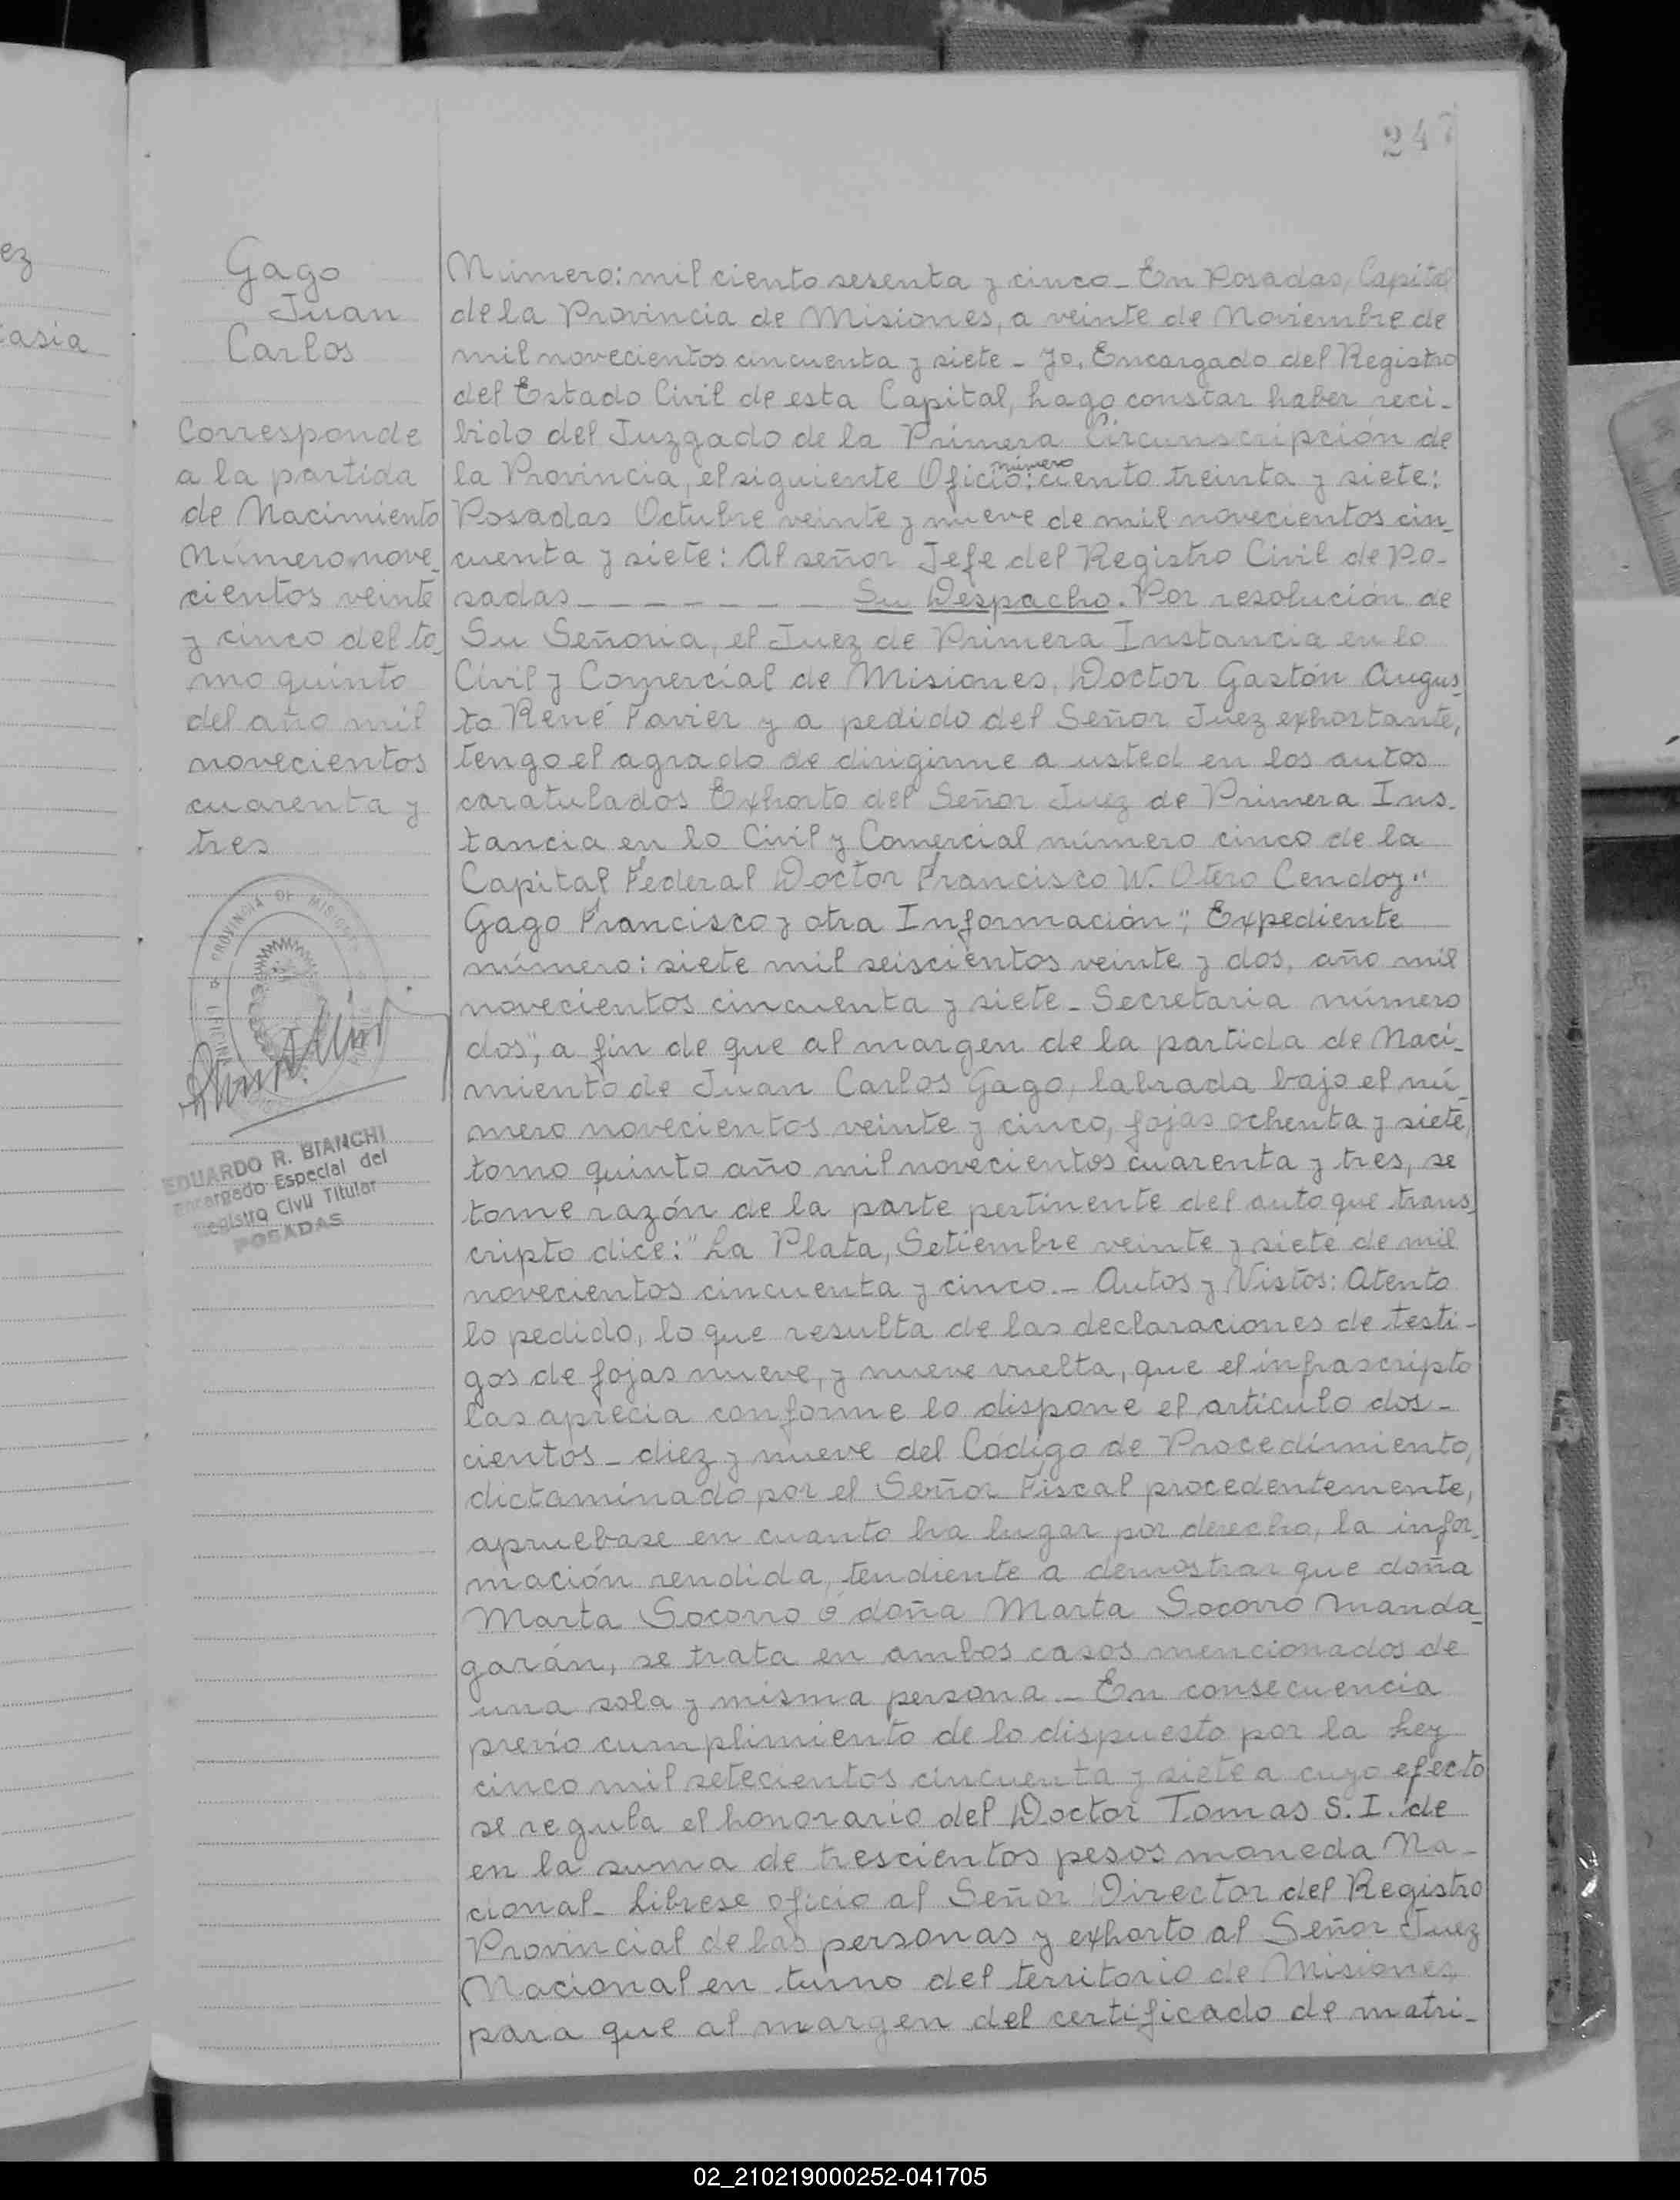 247
ez
tasia
Gago
Juan
Carlos
Corresponde
a la partida
de Nacimiento
Número nove_
cientos veinte
y cinco del to_
mo quinto
del año mil
novecientos
cuarenta y
tres
PROVINCIA DE MISIONES
EDUARDO R. BIANCHI
Encargado Especial del
Registro Civil Titular
POSADAS
Número: mil ciento sesenta y cinco_ En Posadas, Capital
de la Provincia de Misiones, a veinte de Noviembre de
mil novecientos cincuenta y siete_ Yo, Encargado del Registro
del Estado Civil de esta Capital, hago constar haber reci_
bido del Juzgado de la Primera Circunscripción de
la Provincia, el siguiente Oficio: número ciento treinta y siete:
Posadas Octubre veinte y nueve de mil novecientos cin_
cuenta y siete: Al señor Jefe del Registro Civil de Po_
sadas_ _ _ _ _ _ _ Su Despacho. Por resolución de
Su Señoria, el Juez de Primera Instancia en lo
Civil y Comercial de Misiones, Doctor Gastón Augus_
to René Favier y a pedido del Señor Juez exhortante,
tengo el agrado de dirigirme a usted en los autos
caratulados Exhorto del Señor Juez de Primera Ins_
tancia en lo Civil y Comercial número cinco de la
Capital Federal Doctor Francisco W. Otero Cendoy"
Gago Francisco y otra Información", Expediente
número: siete mil seiscientos veinte y dos, año mil
novecientos cincuenta y siete_ Secretaria número
dos", a fin de que al margen de la partida de Naci_
miento de Juan Carlos Gago, labrada bajo el nú_
mero novecientos veinte y cinco, fojas ochenta y siete,
tomo quinto año mil novecientos cuarenta y tres, se
tome razón de la parte pertinente del auto que trans_
cripto dice: "La Plata, Setiembre veinte y siete de mil
novecientos cincuenta y cinco._ Autos y Vistos: Atento
lo pedido, lo que resulta de las declaraciones de testi_
gos de fojas nueve, y nueve vuelta, que el infrascripto
las aprecia conforme lo dispone el artículo dos_
cientos_ diez y nueve del Código de Procedimiento,
dictaminado por el Señor Fiscal procedentemente,
apruebase en cuanto ha lugar por derecho, la infor_
mación rendida, tendiente a demostrar que doña
Marta Socorro ó doña Marta Socorro Manda_
garán, se trata en ambos casos mencionados de
una sola y misma persona_ En consecuencia
previo cumplimiento de lo dispuesto por la Ley
cinco mil setecientos cincuenta y siete a cuyo efecto
se regula el honorario del Doctor Tomas S. I. de
en la suma de trescientos pesos moneda Na_
cional_ Librese oficio al Señor Director del Registro
Provincial de las personas y exhorto al Señor Juez
Nacional en turno del territorio de Misiones,
para que al margen del certificado de matri_
02_210219000252-041705